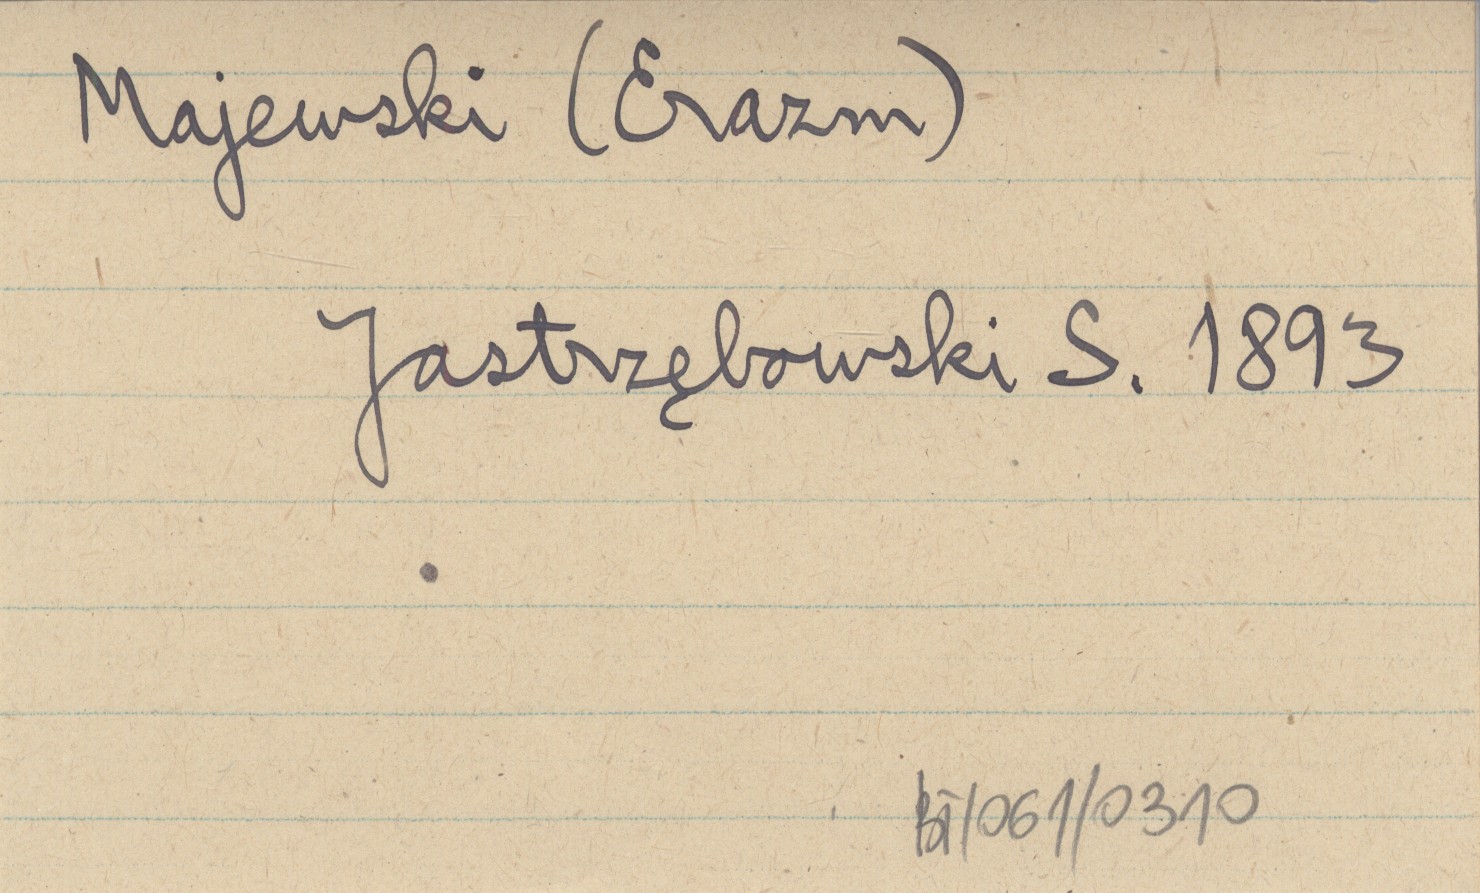 Majewski (Erazm)
Jastrzębowski S. 1893
/061/0310